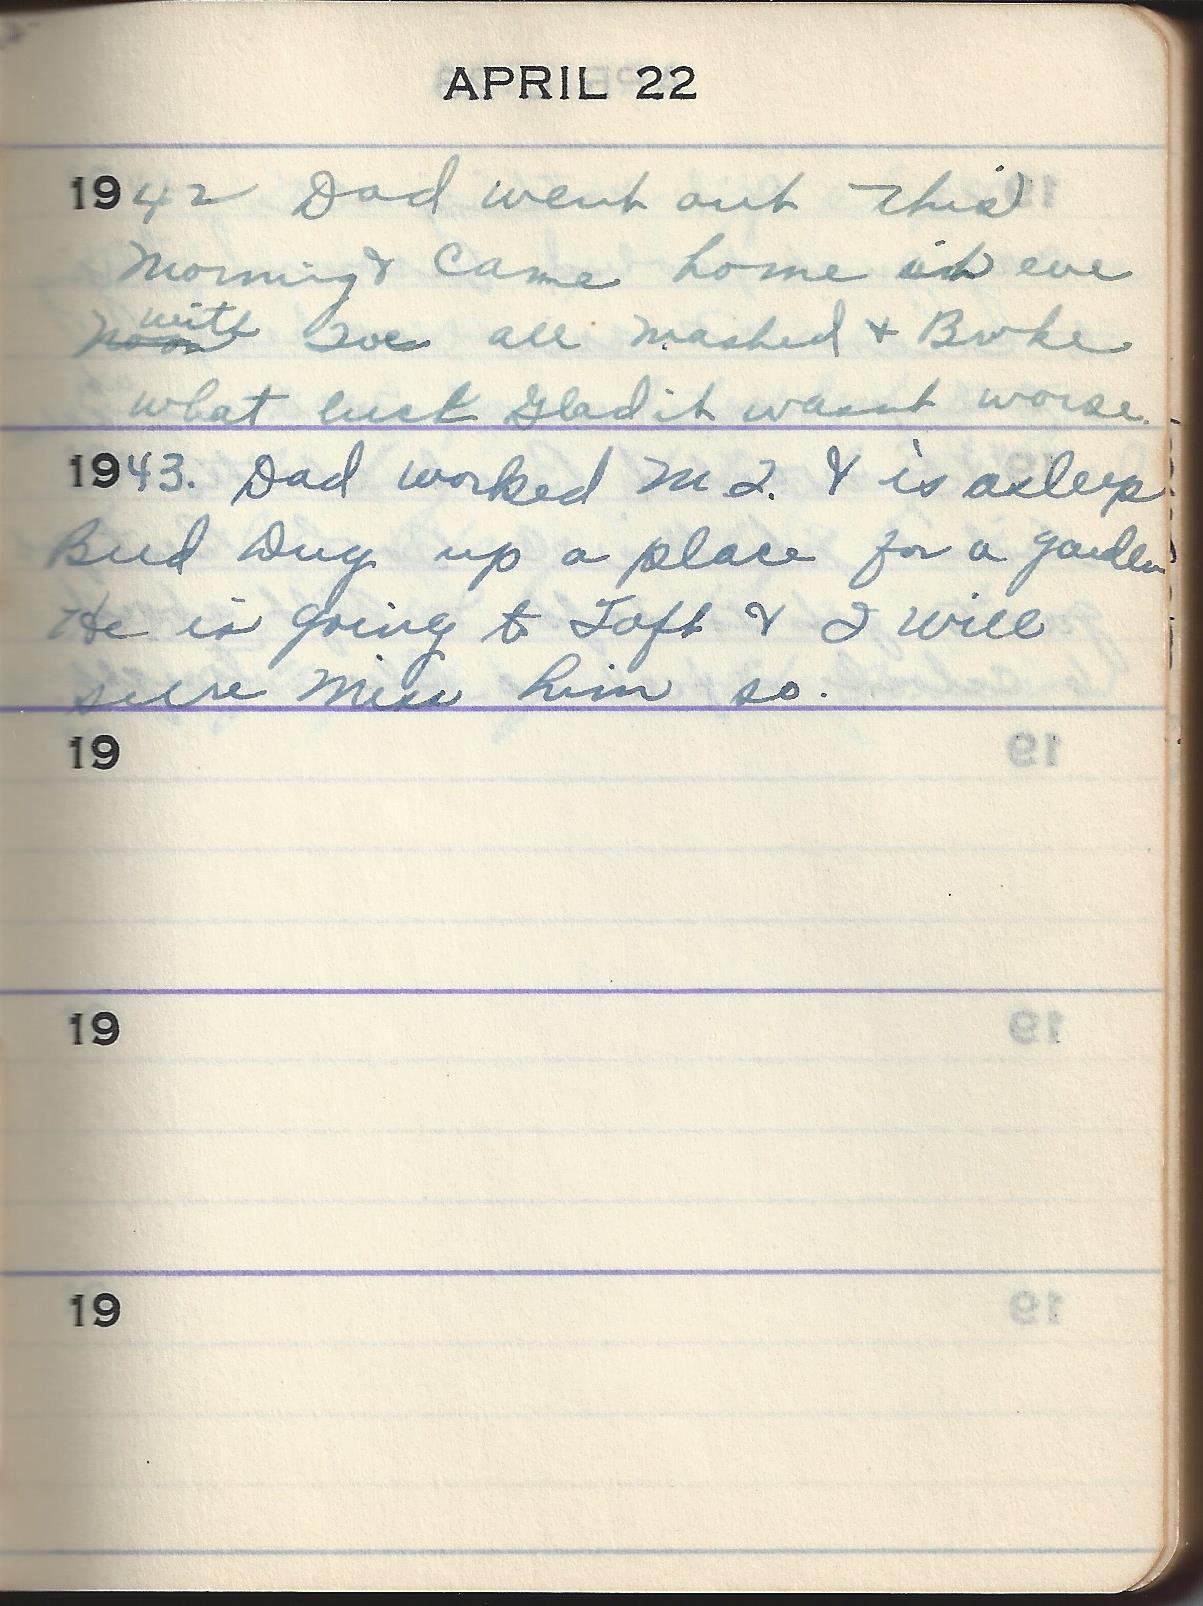 APRIL 22
1942 Dad went out this
morning & Came home in eve
with
Noon Toe all mashed & Broke
what luck Glad it wasnt worse.
1943. Dad worked M I. & is asleep
Bud Dug up a place for a garden
He is going to Taft & I will
sure Miss him so.
19
19
19